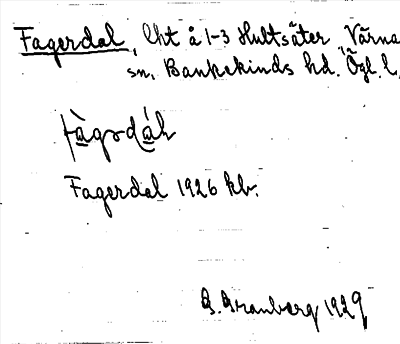 Fagerdal, lht å 1-3 Hultsäter, Värna
sn, Bankekinds hd. Ögl. l.
Fagerdal 1926 kb.
B. Granberg 1929